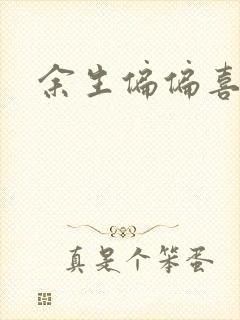 余生偏偏喜
真是个笨蛋